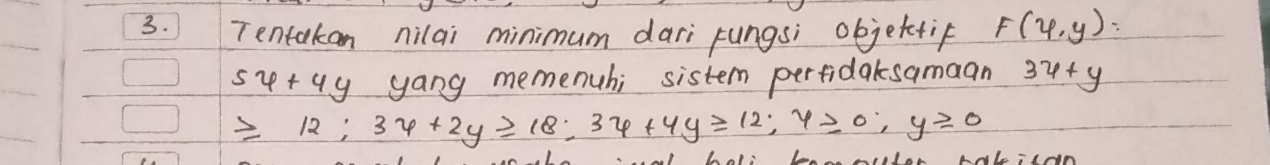 3. Tentukan nilai minimum dari fungsi objektif F(x,y) =
5x + 4y yang memenuhi sistem pertidaksamaan 3x + y
≥ 12 ; 3x + 2y ≥ 18 ; 3x + 4y ≥ 12 ; x ≥ 0 ; y ≥ 0